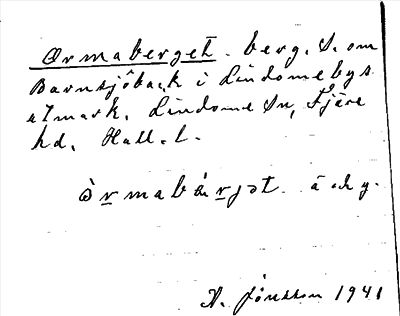 Ormaberget. berg, S. om
Barnsjöbäck i Lindomebys
utmark. Lindome sn, Fjäre
hd, Hall. l.
òrmabärjət. ä. dky.
A. Jönsson 1941